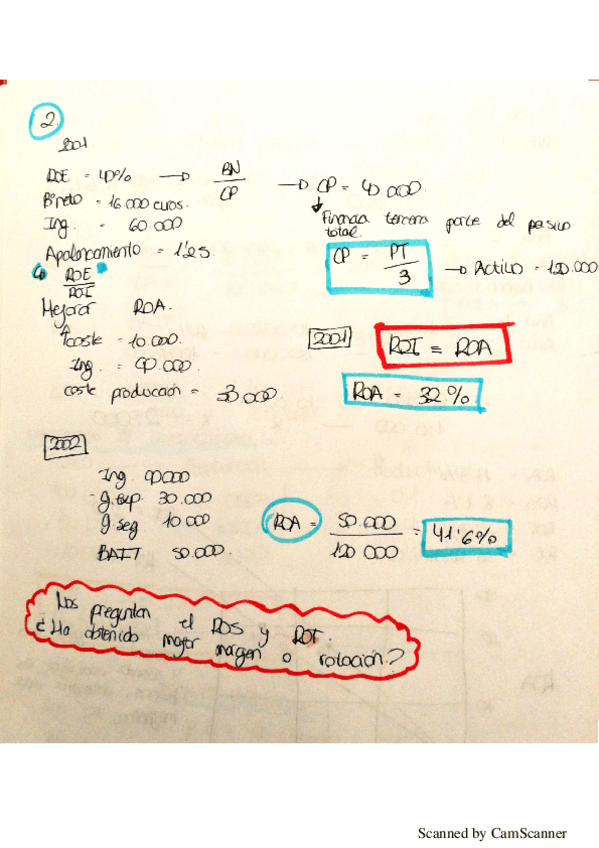 2
2001
ROE = 40% → BN / CP → CP = 40.000.
Bº neto = 16.000 euros.
Ing. = 60.000
Financia tercera parte del pasivo
total.
Apalancamiento = 1'25
CP = PT / 3 → Activo = 120.000
ROE / ROI
Mejorar ROA.
↑coste = 10.000.
2001 ROI = ROA
Ing. = 90.000.
coste producción = 30.000.
ROA = 32%
2002
Ing 90000
g. exp. 30.000
g. seg. 10.000
BAIT 50.000.
ROA = 50.000 / 120 000 = 41'6%
Nos preguntan el ROS y ROT.
¿Ha obtenido mejor margen o rotación?
Scanned by CamScanner